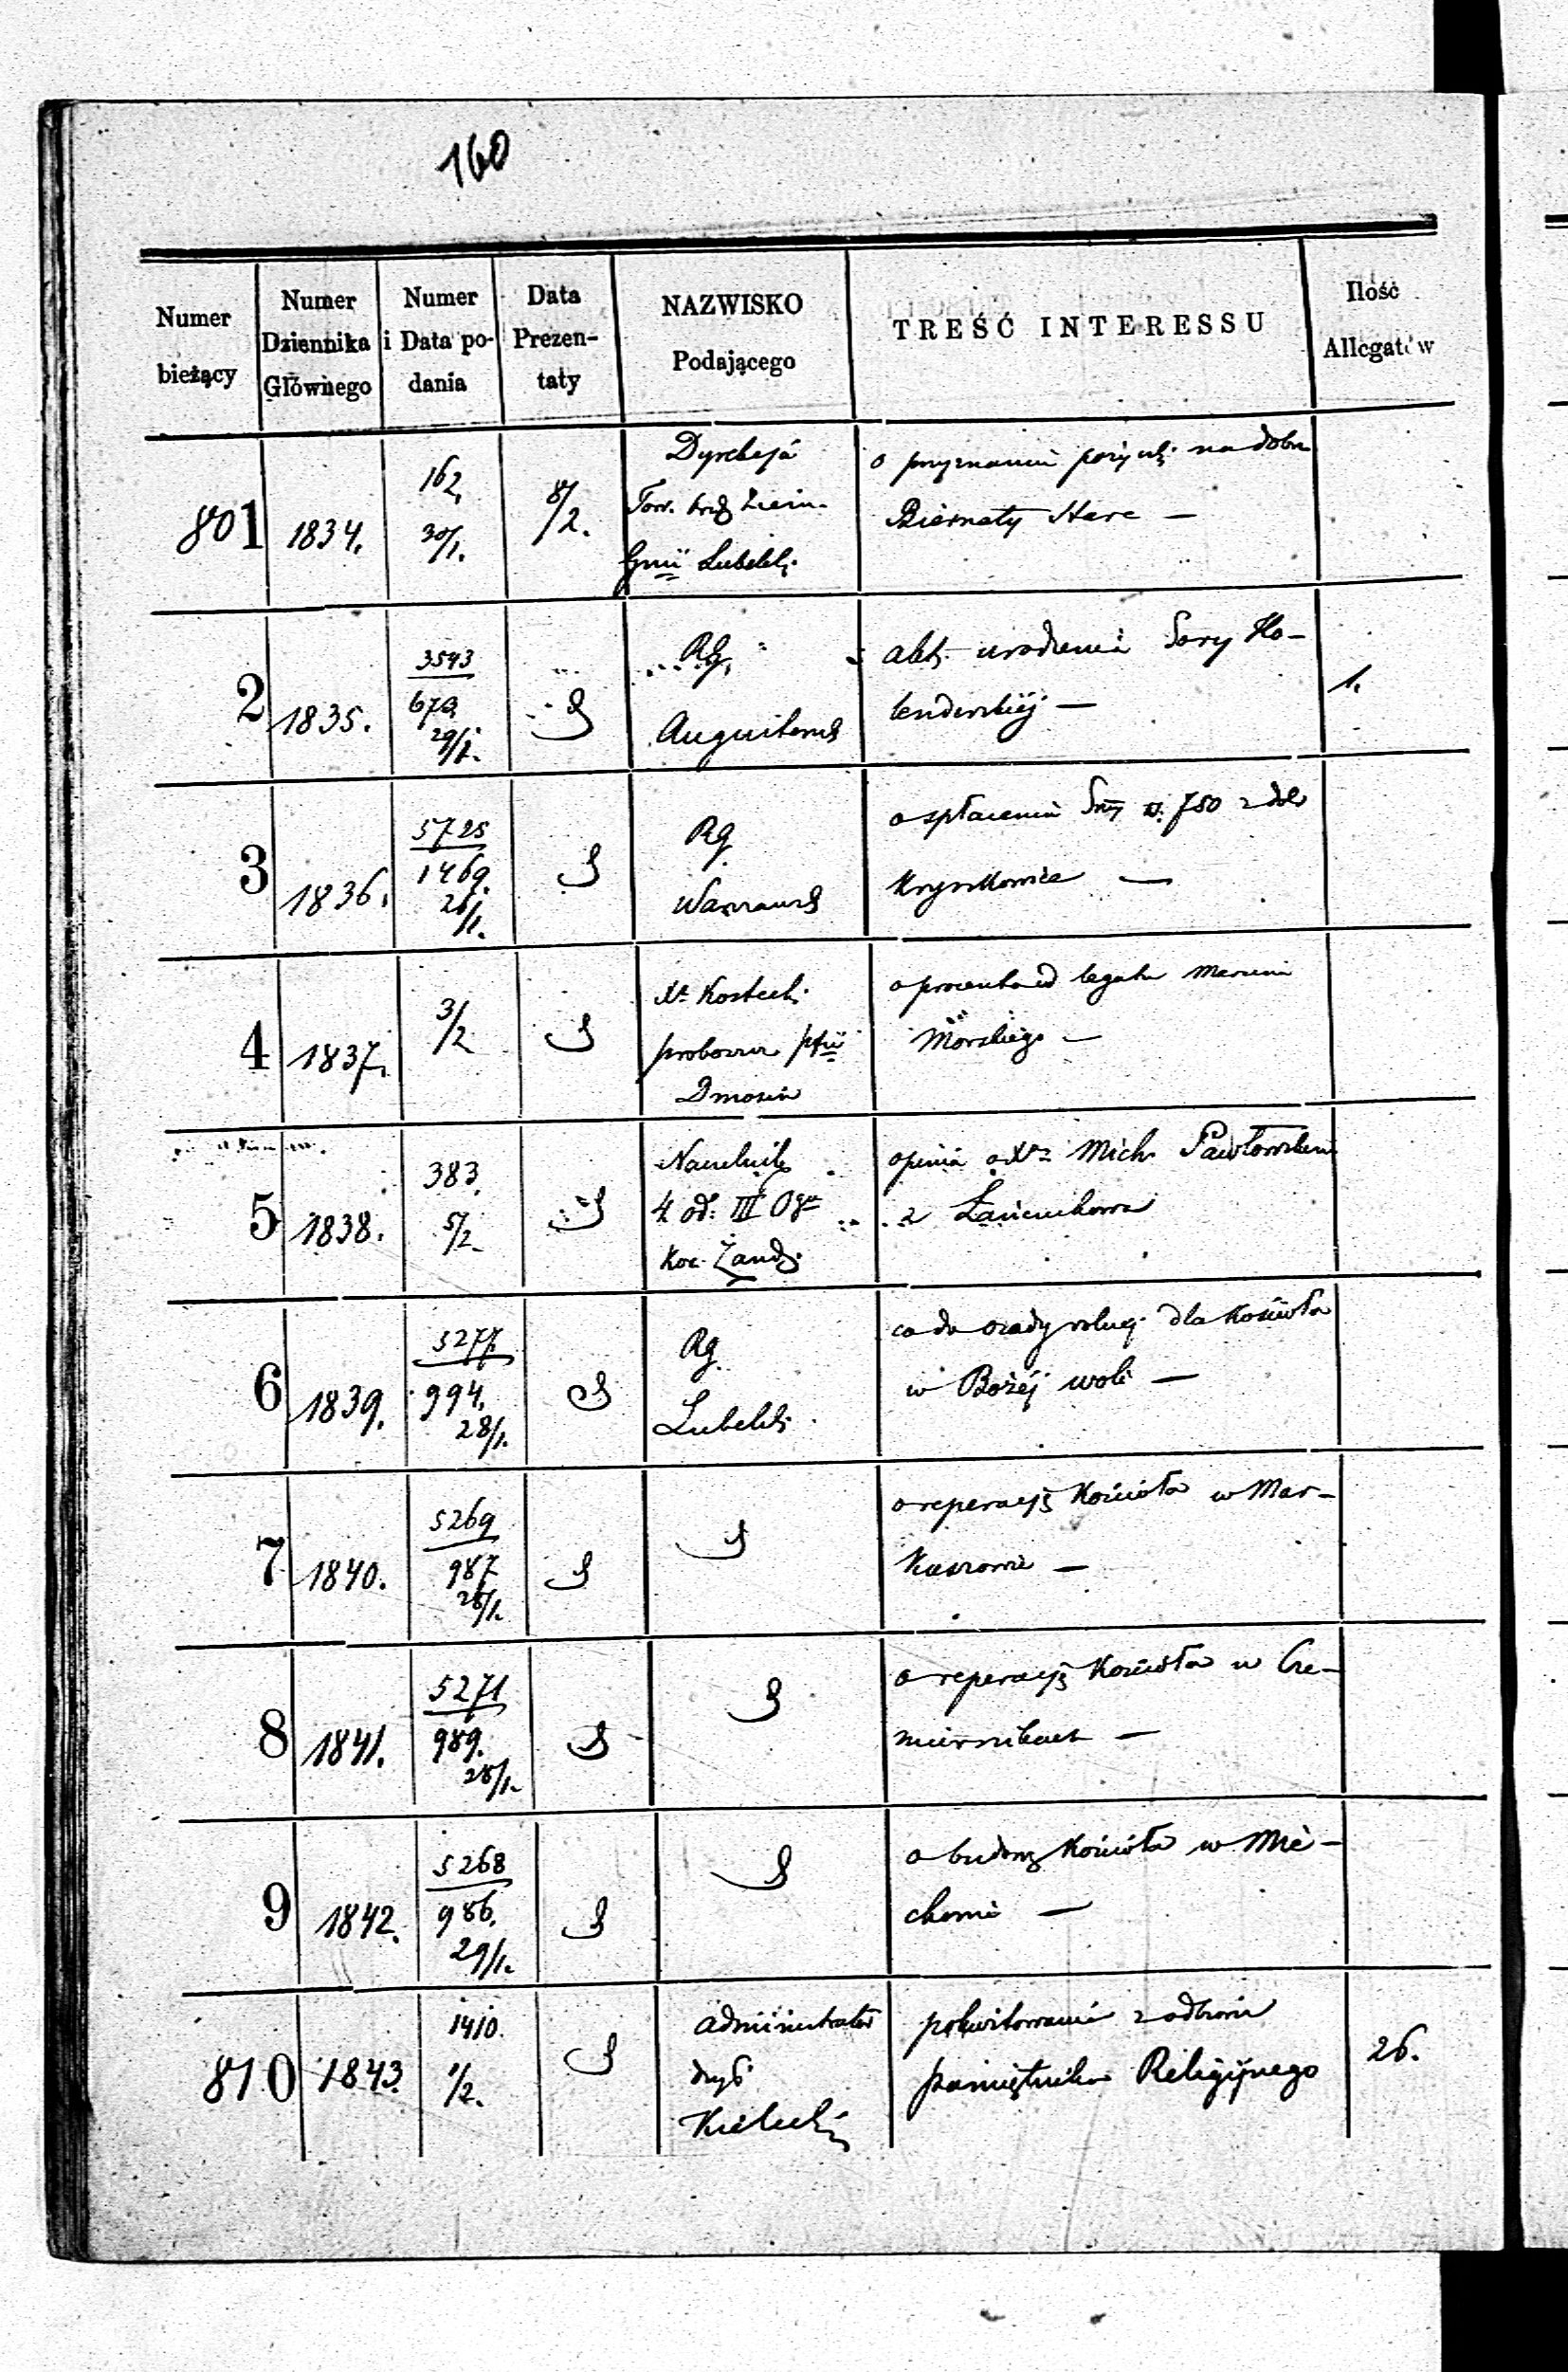 160
Numer bieżący | Numer Dziennika Głównego | Numer i Data podania | Data Prezentaty | NAZWISKO Podającego | TREŚĆ INTERESSU | Ilość Allegatów
801 | 1834. | 162, 30/1. | 8/2. | Dyrekcja Tow. Ziem. Gnii Lubelsk. | o przyznaniu pożyczki na dobra Biernaty Stare —
2 | 1835. | 3543 679 29/1. | Rg. Augustows | akt urodzenia Sory Holenderskiéj — | 1.
3 | 1836. | 5725 1469. 26/1. | Rg Warszaws | o spłacenie 750 z dóbr
4 | 1837. | 3/2 | Xt Kostecki proboszcz pfii Dmosin | o procenta od legatu Marcina Morskiego —
5 | 1838. | 383. 5/2. | Naczelnik 4 od: III Ogu Żand. | opinia o Xu Mich. Pawłowskim z Łańcuchowa
6 | 1839. | 5277. 994. 28/1. | Rg. Lubelsk. | co do osady dla Kościoła w Bożéj woli —
7 | 1840. | 5269 987 28/1. | o reperacyę Kościoła w Markuszowie —
8 | 1841. | 5271 989. 28/1. | o reperacyę Kościoła w Czemiernikach —
9 | 1842. | 5268 986. 29/1. | o budowę Kościoła w Miechowie —
810 | 1843. | 1410. 1/2. | Administrator dyec. Kielecki | pokwitowanie z odbioru Pamiętnika Religijnego | 26.